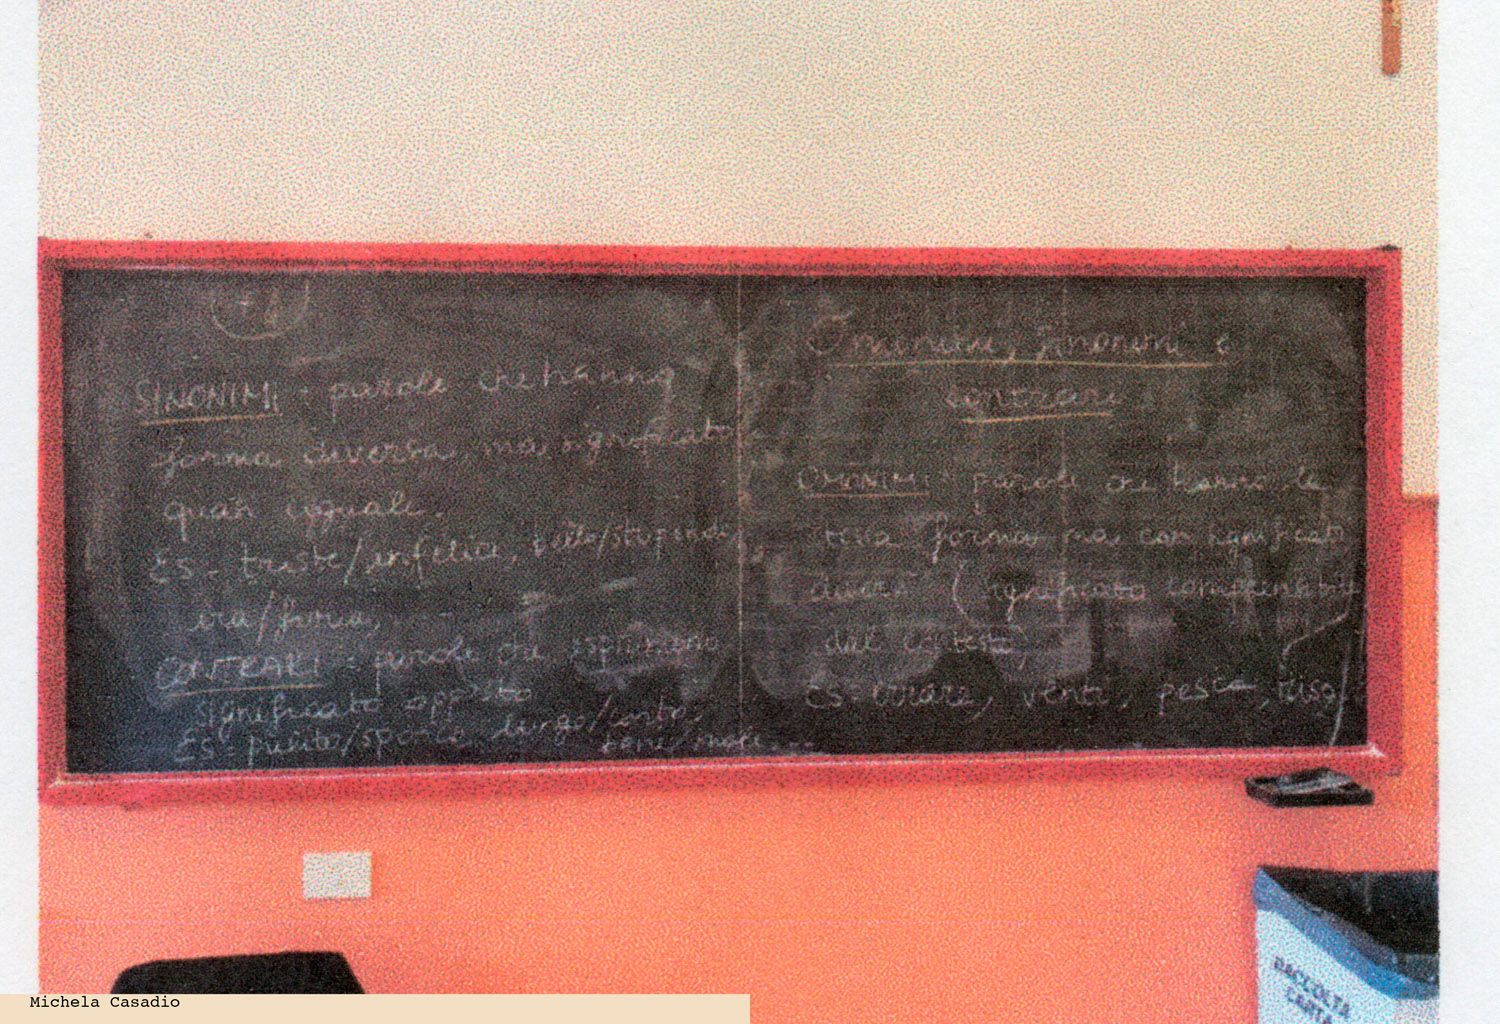 SINONIMI - parole che hanno
forma diversa, ma significato
quasi uguale.
ES - triste/infelice, bello/stupendo,
ira/furia,
CONTRARI - parole che esprimono
significato opposto
ES - pulito/sporco, lungo/corto,
bene/male...
Omonimi, sinonimi e
contrari
OMONIMI - parole che hanno la
stessa forma, ma con significato
diversi (significato comprensibile
dal contesto)
ES - errare, venti, pesca, riso,
RACCOLTA
CARTA
Michela Casadio